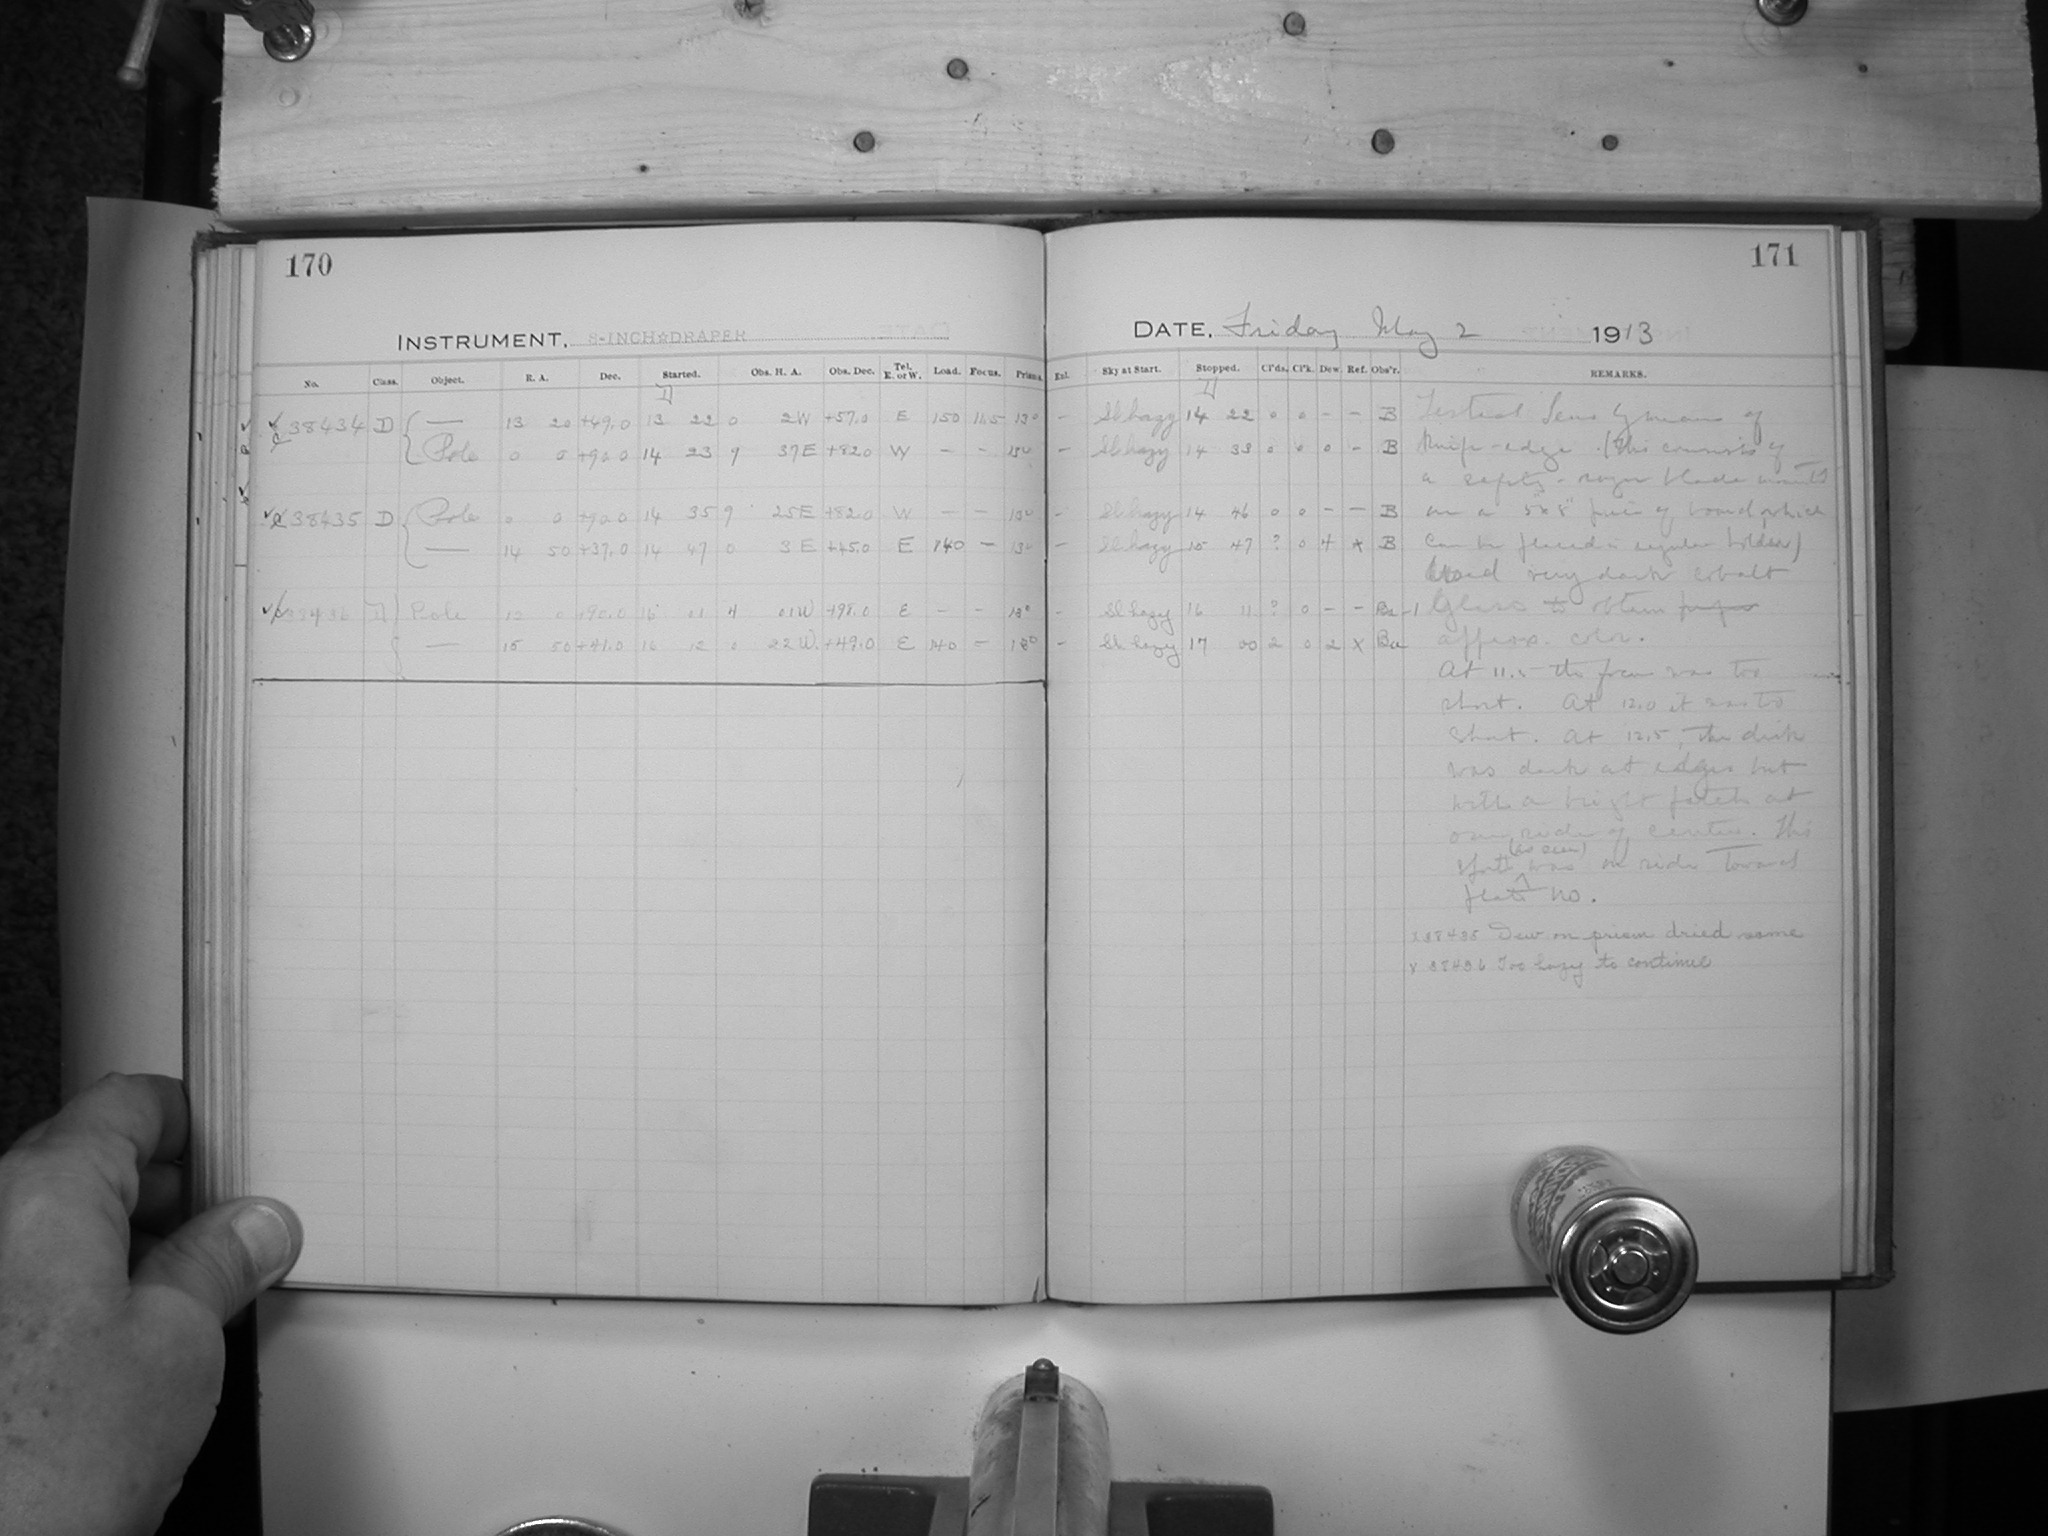 170
INSTRUMENT. 8-INCH DRAPER
No. Class. Object. R. A. Dec. Started. Obs. H. A. Obs. Dec. Tel. E. or W. Load. Focus. Prism.
38434 D { — 13 20 +49.0 13 22 0 2W +57.0 E 150 11.5 13°
Pole 0 0 +90.0 14 23 9 37E +82.0 W — —
38435 D { Pole 0 0 +90.0 14 35 9 25E +82.0 W — —
— 14 50 +37.0 14 47 0 3E +45.0 E 140 —
38436 D } Pole 12 0 +90.0 16 01 4 01W +98.0 E — — 13°
— 15 50 +41.0 16 12 0 22W. +49.0 E 140 —
171
DATE. Friday May 2 1913
Exl. Sky at Start. Stopped. Cl'ds. Cl'k. Dew. Ref. Obs'r. REMARKS.
— Sl hazy 14 22 0 0 — — B Tested lens by means of
— Sl hazy 14 33 0 0 0 - B knife-edge. (This consists of
a safety-razor blade mounted
— Sl hazy 14 46 0 0 — — B on a 5"x8" piece of board which
— Sl hazy 15 47 ? 0 4 x B can be placed in regular holder)
Used very dark cobalt
— Sl hazy 16 11 ? 0 — — Bu Glass to obtain
— Sl hazy 17 00 2 0 2 x Bu approx. color.
At 11.5 the focus was too
short. At 12.0 it was too
short. At 12.5, the disk
was dark at edges but
with a bright patch at
one side of center. This
(as seen)
was on side toward
plate no.
x 38435 Dew on prism dried some
x 38436 Too hazy to continue